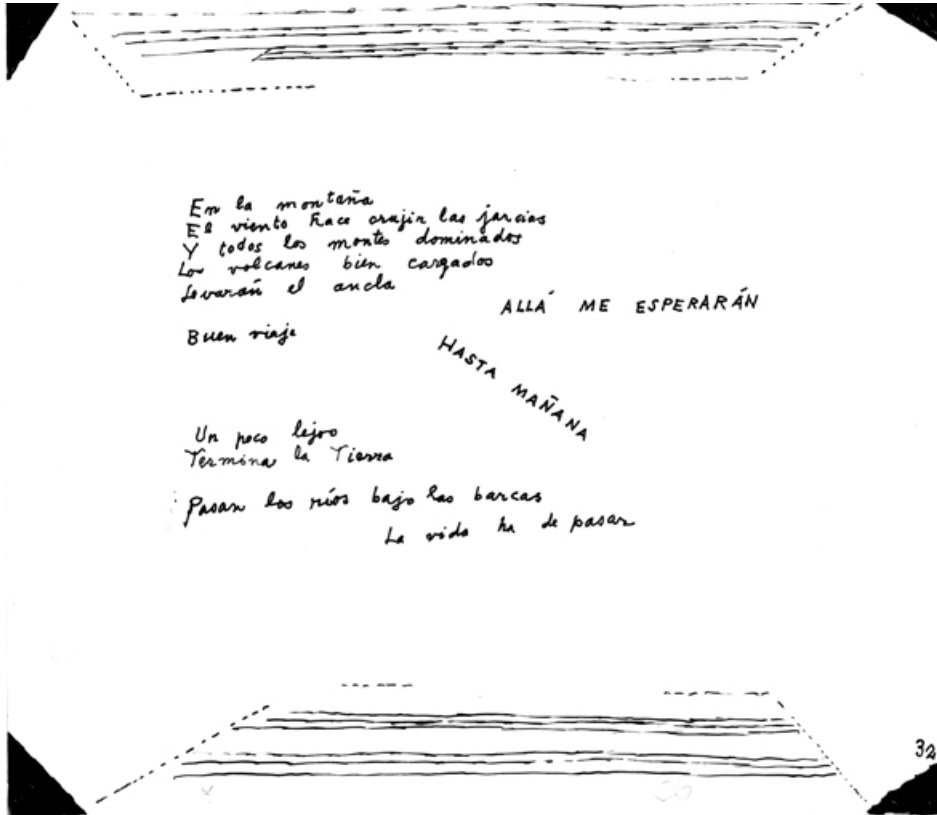 En la montaña
El viento hace crujir las jarcias
Y todos los montes dominados
Los volcanes bien cargados
Levarán el ancla
ALLÁ ME ESPERARÁN
Buen viaje
HASTA MAÑANA
Un poco lejos
Termina la Tierra
Pasan los ríos bajo las barcas
La vida ha de pasar
32